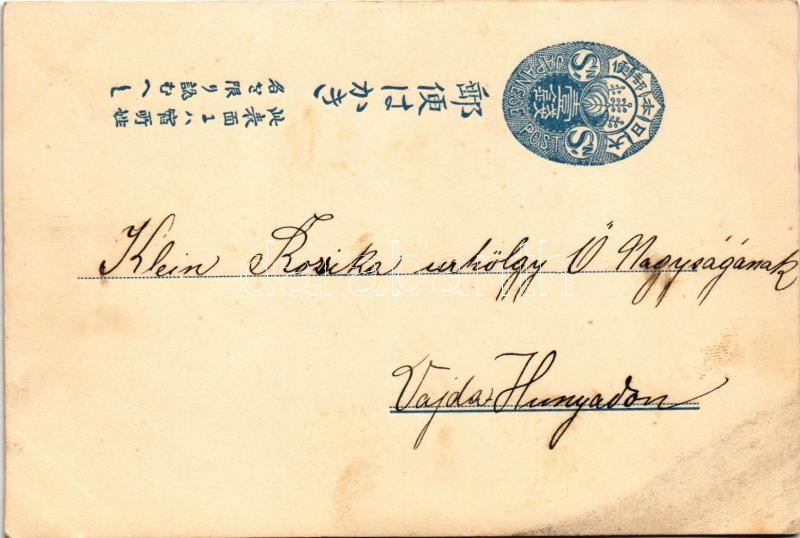 郵便はかき
此表面ニハ宿所姓
名を限り認むへし
大日本郵便
JAPANESE POST
壹錢
1 Sn
1 Sn
Klein Rozika urhölgy Ő Nagyságának
Vajda-Hunyadon
darabanth